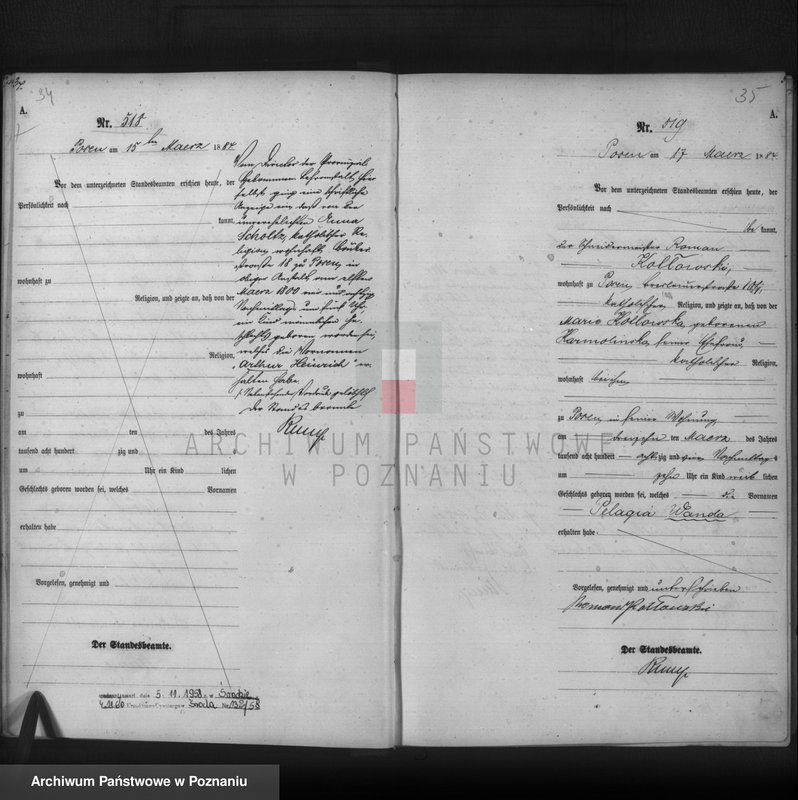 34
A.
Nr. 518
Posen am 15ten Maerz 1884
Vor dem unterzeichneten Standesbeamten erschien heute, der
Persönlichkeit nach
kannt,
wohnhaft zu
Religion, und zeigte an, daß von der
Religion,
wohnhaft
zu
am ten des Jahres
tausend acht hundert zig und
um Uhr ein Kind lichen
Geschlechts geboren worden sei, welches Vornamen
erhalten habe
Vorgelesen, genehmigt und
Der Standesbeamte.
Vom Director der Provinzial
Hebammen Lehranstalt hier
selbst ging eine schriftliche
Anzeige ein, daß von der
unverehelichten Anna
Scholtz, katholischer Re-
ligion wohnhaft
straße 18 zu Posen, in
obiger Anstalt am elften
Maerz
Nachmittags um fünf Uhr
ein Kind männlichen Ge-
schlechts geboren worden sei,
welches die Vornamen
"Arthur Heinrich" er-
halten habe.
Der Standesbeamte
zmarł dnia 5.11.1958 r. w Środzie
Urząd Stanu Cywilnego w Środa Nr 132/58
35
A.
Nr. 519
Posen am 17 Maerz 1884
Vor dem unterzeichneten Standesbeamten erschien heute, der
Persönlichkeit nach
be kannt,
der Schneidermeister Roman
Kołłowski,
wohnhaft zu Posen,
katholischer Religion, und zeigte an, daß von der
Marie Kołłowska geborenen
Karmolinska seiner Ehefrau
katholischer Religion,
wohnhaft bei ihm
zu Posen in seiner Wohnung
am ten Maerz des Jahres
tausend acht hundert achtzig und vier Nachmittags
um zehn Uhr ein Kind weib lichen
Geschlechts geboren worden sei, welches die Vornamen
Pelagia Wanda
erhalten habe.
Vorgelesen, genehmigt und unterschrieben
Roman Kołłowski
Der Standesbeamte.
ARCHIWUM PAŃSTWOWE
W POZNANIU
Archiwum Państwowe w Poznaniu